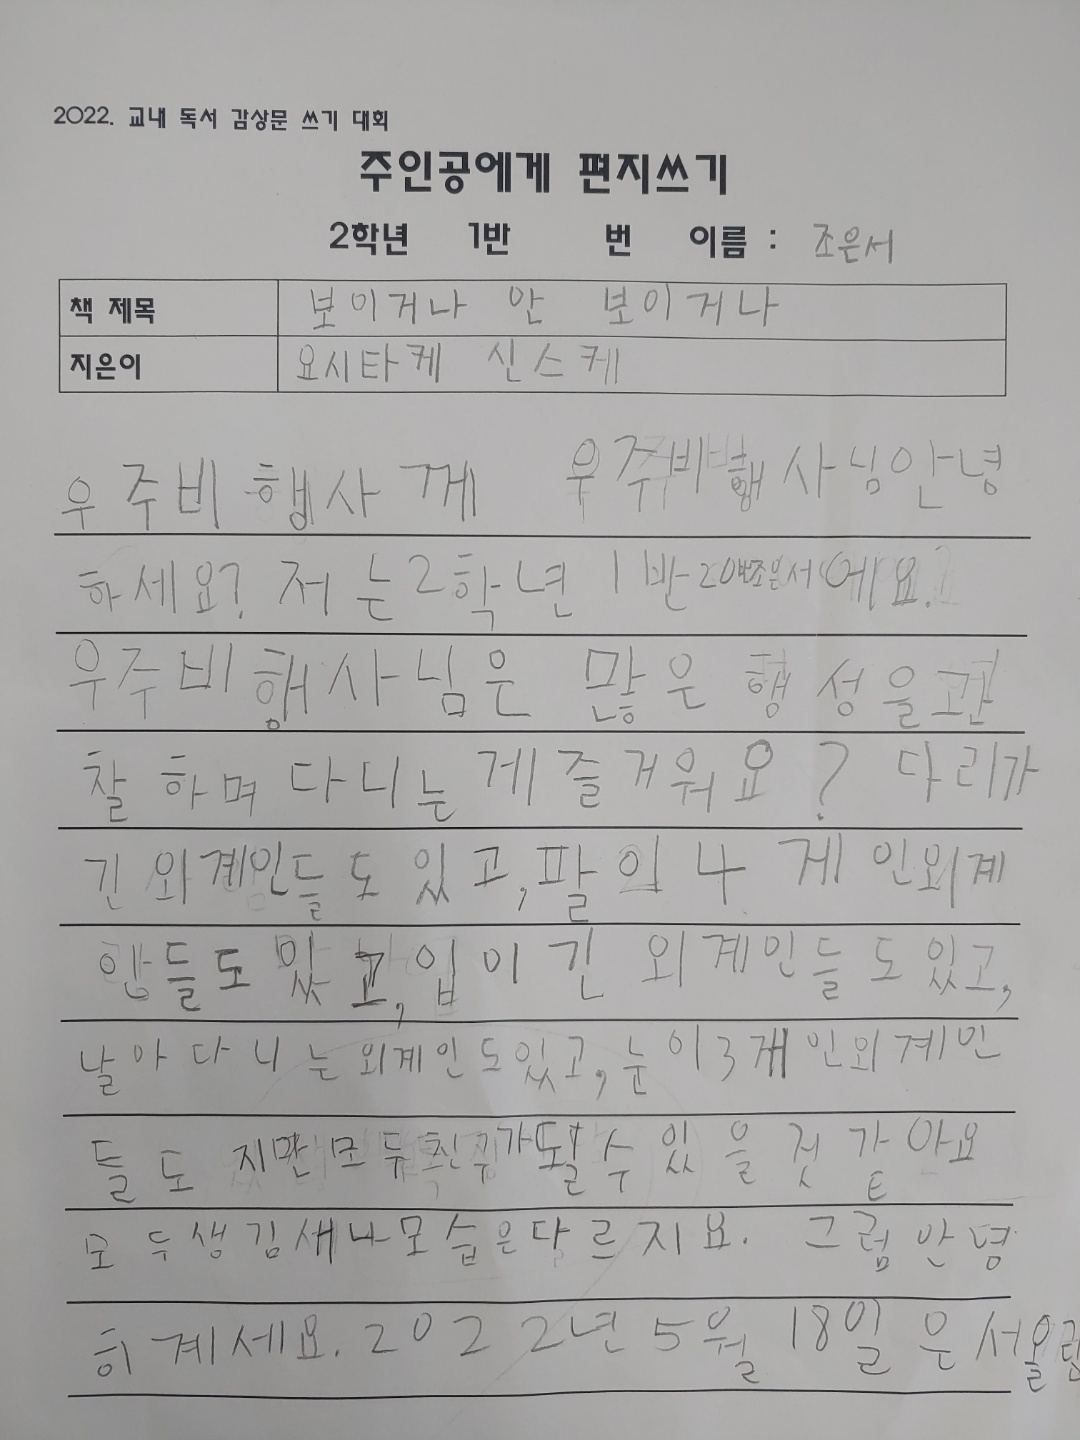 2022. 교내 독서 감상문 쓰기 대회
주인공에게 편지쓰기
2학년 1반 번 이름 : 조은서
책 제목 보이거나 안 보이거나
지은이 요시타케 신스케
우주비행사 께 우주비행사님안녕
하세요? 저는2학년 1반20번조은서에요.
우주비행사님은 많은 행성을관
찰하며다니는게즐거워요? 다리가
긴외계인들도있고,팔이나게인외계
인들도있고,입이긴외계인들도있고,
날아다니는외계인도있고,눈이3개인외계인
들도 지만모두친구가될수있을것같아요
모두생김새나모습은다르지요. 그럼안녕
히계세요.2022년5월18일은서올림